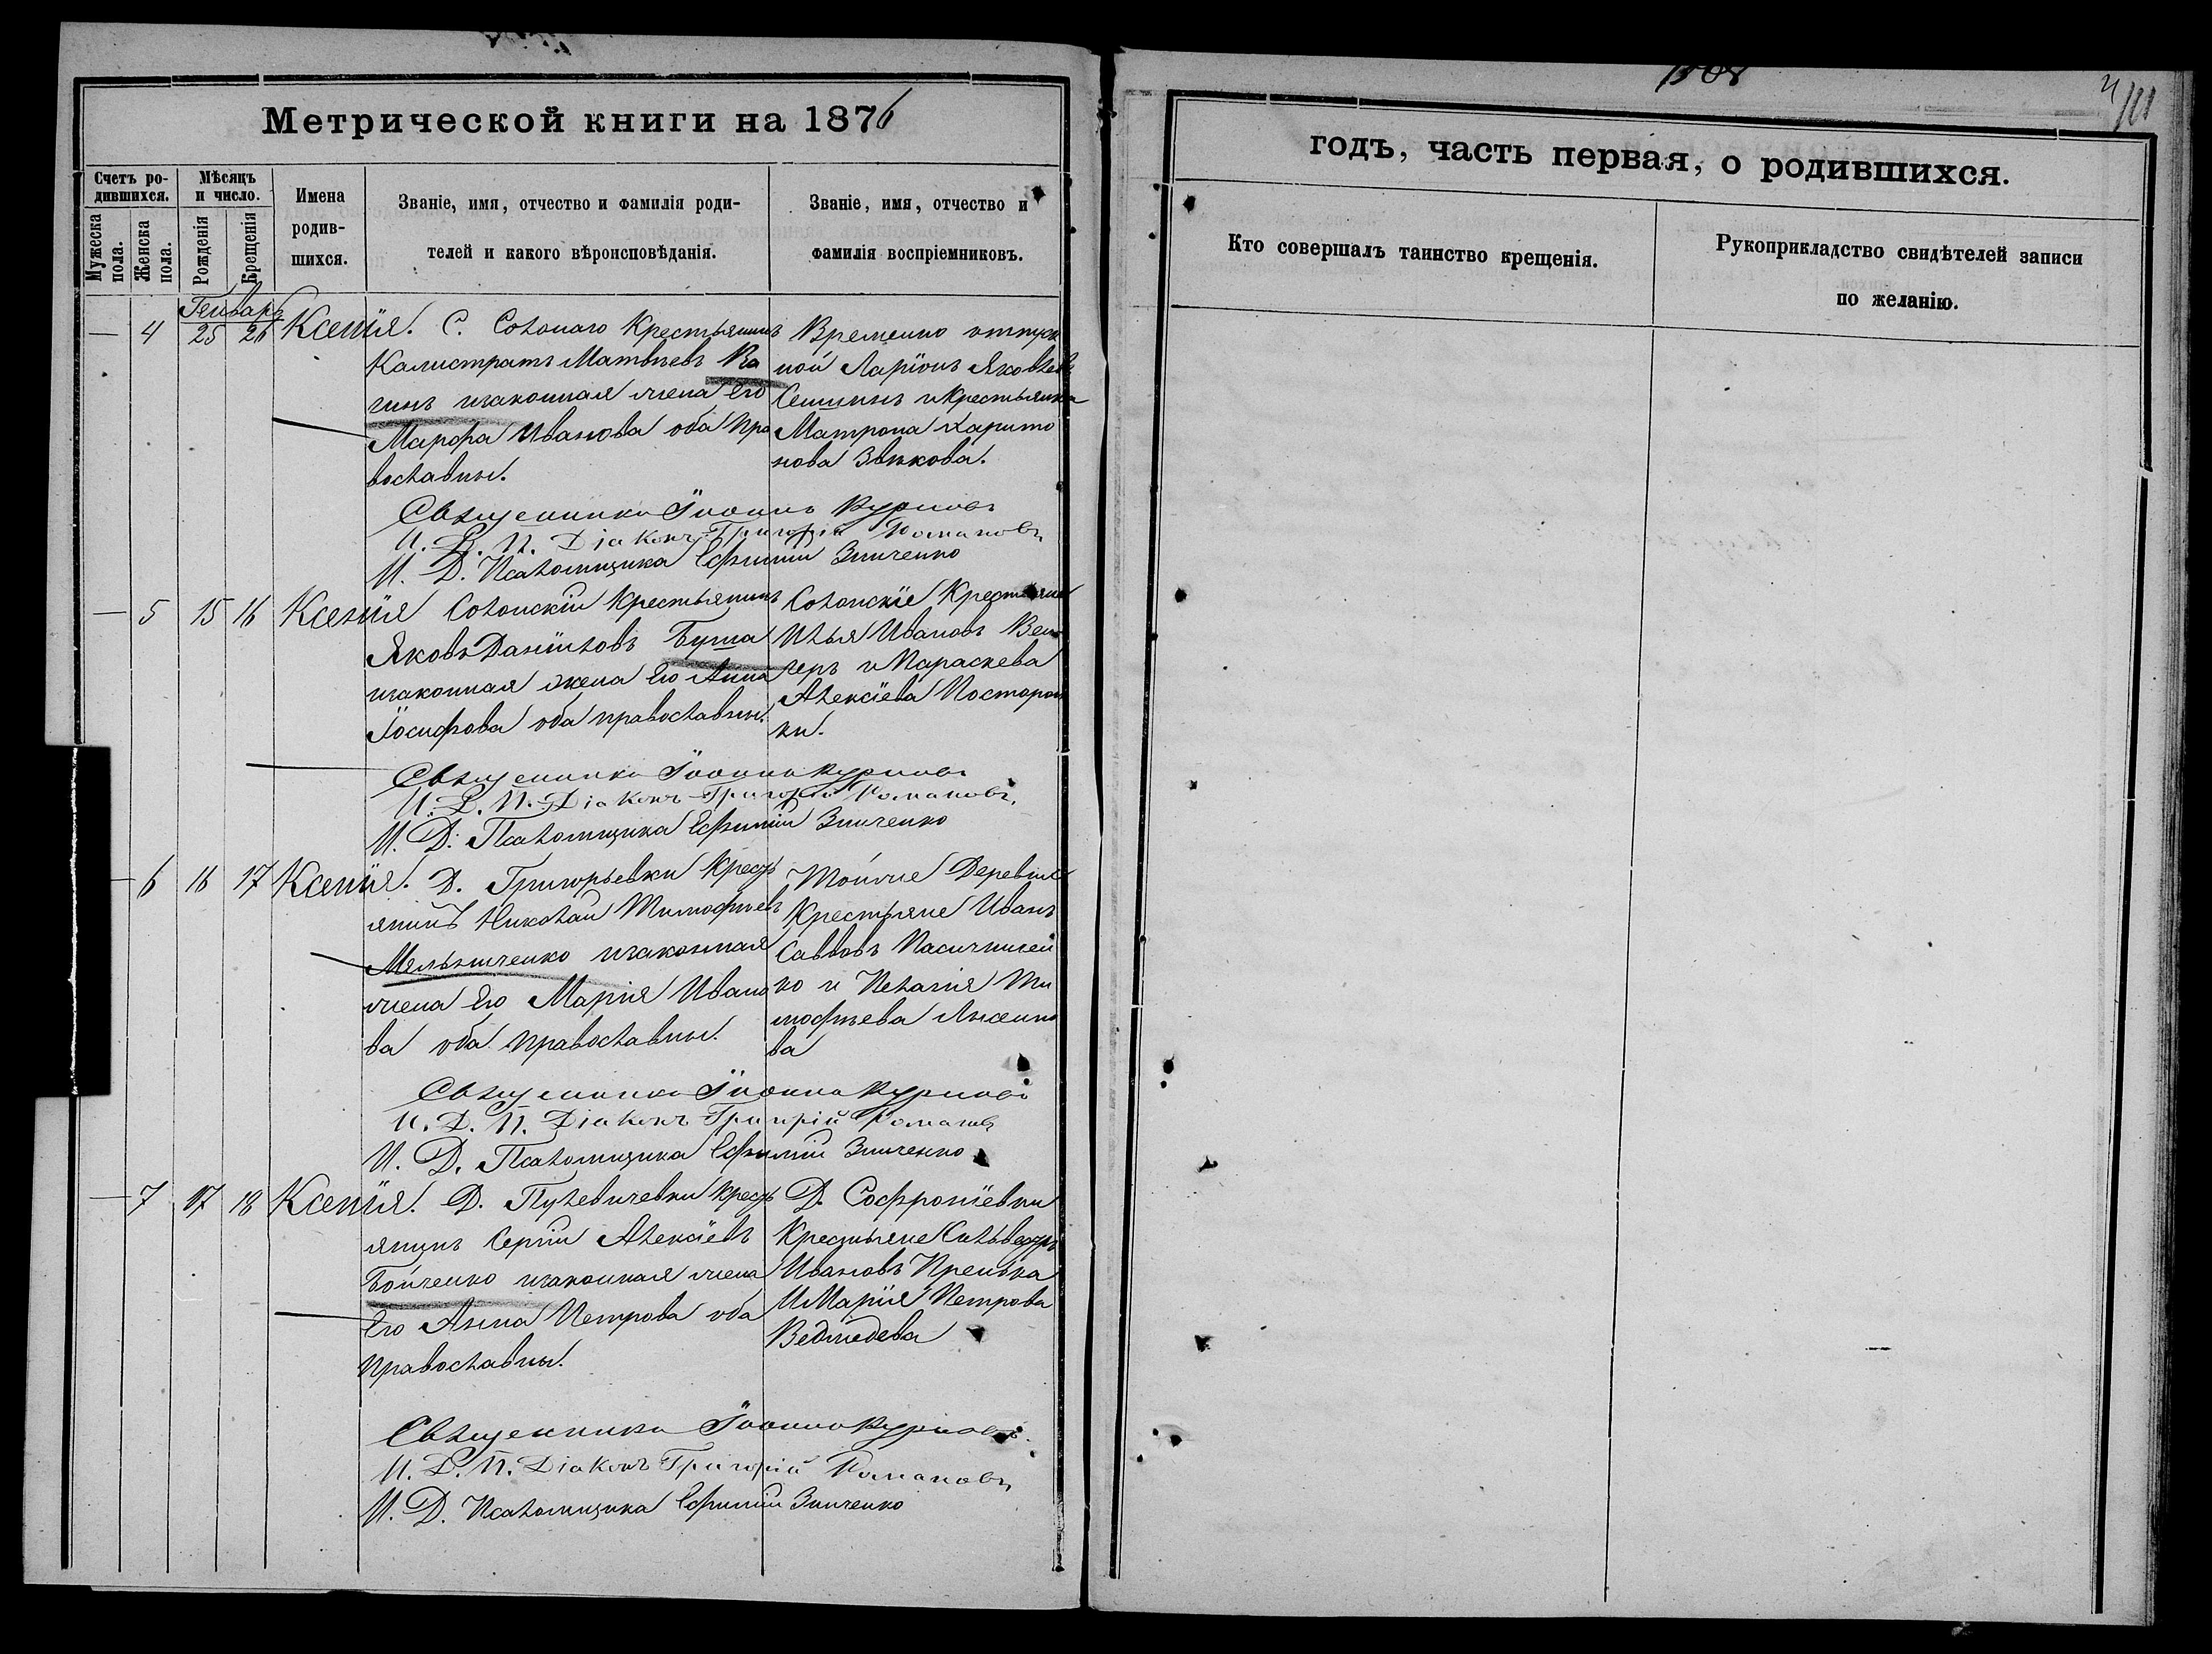 Метрической книги на 1876
Счетъ ро-
дившихся.
Мужеска
пола.
Женска
пола.
Мѣсяцъ
и число.
Рожденія
Крещенія
Имена
родив-
шихся.
Званіе, имя, отчество и фамилія роди-
телей и какого вѣроисповѣданія.
Званіе, имя, отчество и
фамилія воспріемниковъ.
Генварь
4 25 26 Ксенія.
С. Солонаго Крестьянинъ
Калистратъ Матвѣевъ Ка
гинъ изаконная жена Его
Марфа Иванова оба пра
вославны.
Временно отпуск
ной Ларіонъ Яковлевъ
икрестьянка
Матрона Харито
нова Звѣкова.
Священникъ Іоаннъ Куриловъ
И. Д. П. Діаконъ Григорій Романовъ
И. Д. Псаломщика Ефимій Зинченко
5 15 16 Ксенія
Солонскій Крестьянинъ
Яковъ Даніиловъ Буша
изаконная жена Его Анна
Іосифова оба православны.
Солонскіе Крестьяне
Илья Ивановъ Вен
геръ и Параскева
Алексіева Посторон
ки.
Священникъ Іоаннъ Куриловъ
И. Д. П. Діаконъ Григорій Романовъ
И. Д. Псаломщика Ефимій Зинченко
6 16 17 Ксенія.
Д. Григорьевки Крест
янинъ Николай Тимофѣевъ
Мельниченко изаконная
жена Его Марія Ивано
ва оба православны.
Тойже Деревни
Крестьяне Иванъ
Саввовъ Пасичничен
ко и Пелагія Ти
мофѣева Лысенко
ва
Священникъ Іоаннъ Куриловъ
И. Д. П. Діаконъ Григорій Романовъ
И. Д. Псаломщика Ефимій Зинченко
7 17 18 Ксенія.
Д. Крест
янинъ Сергій Алексіевъ
Бойченко изаконная жена
Его Анна Петрова оба
православны.
Д. Софроніевки
Крестьяне Сильвестръ
Ивановъ
ИМарія Петрова
Ведмедева
Священникъ Іоаннъ Куриловъ
И. Д. П. Діаконъ Григорій Романовъ
И. Д. Псаломщика Ефимій Зинченко
годъ, часть первая, о родившихся.
Кто совершалъ таинство крещенія.
Рукоприкладство свидѣтелей записи
по желанію.